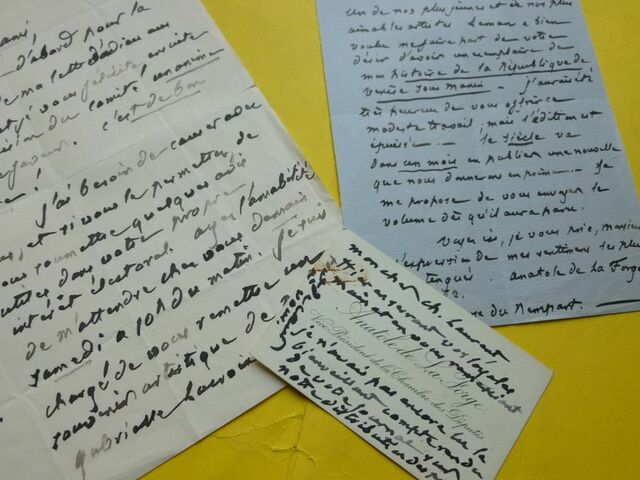 ami,
d'abord pour la
de ma lettre d'adieu aux
et je vous félicite, ensuite
du comité unanime
c'est de bon
!
j'ai besoin de causer avec
et si vous le permettez, de
vous soumettre quelques avis
utiles dans votre propre
intérêt électoral. ayez l'amabilité
de m'attendre chez vous demain
samedi à 10h du matin. je suis
chargé de vous remettre un
souvenir artistique de
gabrielle
un de nos plus jeunes et de nos plus
aimables artistes Laman a bien
voulu me faire part de votre
désir d'avoir un exemplaire de
mon histoire de la République de
Venise sous Manin - j'aurais été
très heureux de vous offrir ce
modeste travail, mais l'édition est
épuisée - le Siècle va
dans un mois en publier une nouvelle
que nous donnerons en prime - Je
me propose de vous envoyer le
volume dès qu'il aura paru.
Veuillez, je vous prie, monsieur
l'expression de mes sentiments les plus
distingués. anatole de la Forge
rue du Rempart.
mon cher ch. Laurent
Anatole de La Forge
Vice-Président de la Chambre des Députés
je n'avais pas encore lu le
bienveillant compte rendu
de votre journal sur
notre distribution des prix